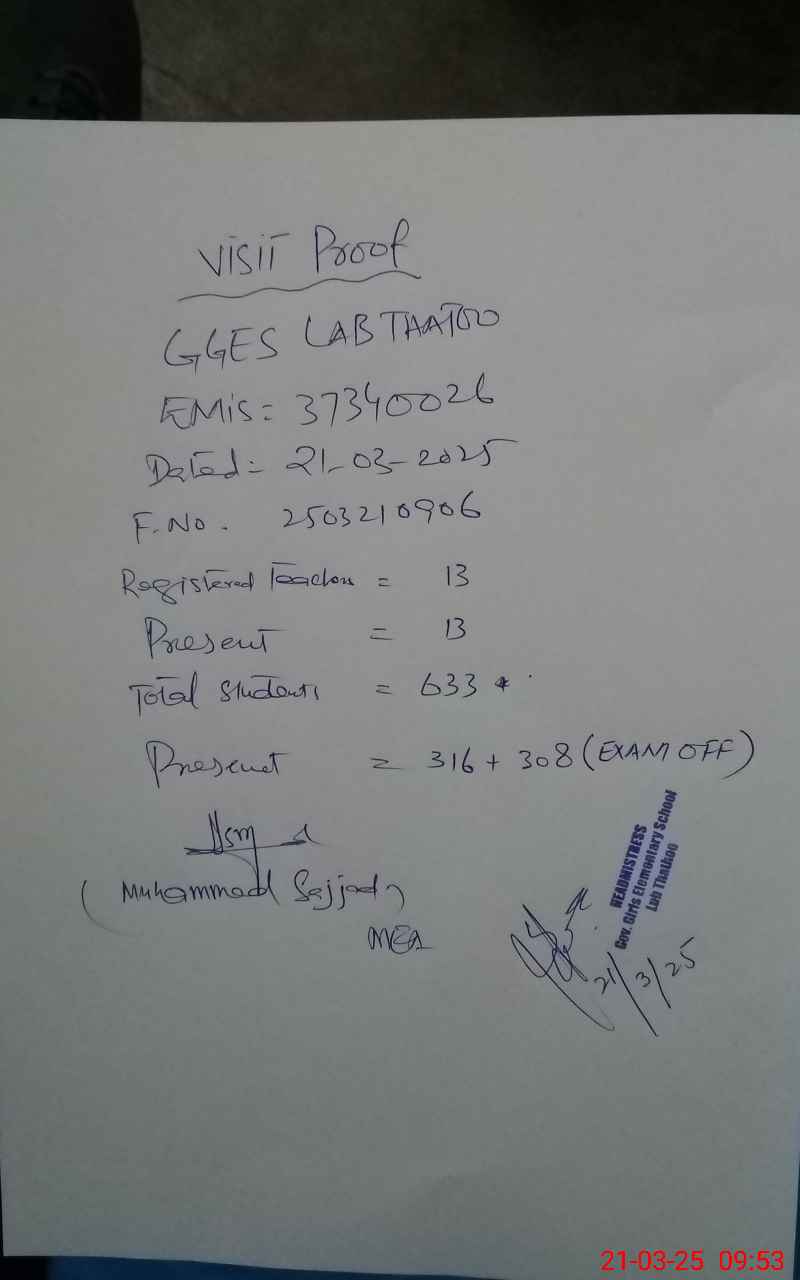 VISIT Proof
GGES LABTHATOO
EMIS = 37340026
Dated = 21-03-2025
F.No. 2503210906
Registered Teachers = 13
Present = 13
Total Students = 633
Present = 316 + 308 (EXAM OFF)
(Muhammad Sajjad)
MEA
HEADMISTRESS
Gov. Girls Elementary School
Lub Thathoo
21/3/25
21-03-25 09:53